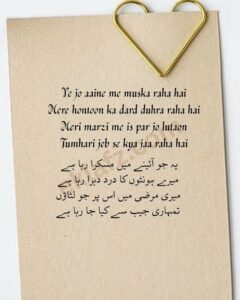 Ye jo aaine me muska raha hai
Mere hontoon ka dard duhra raha hai
Meri marzi me is par jo lutaon
Tumhari jeb se kya jaa raha hai
یہ جو آئینے میں مسکرا رہا ہے
میرے ہونٹوں کا درد دہرا رہا ہے
میری مرضی میں اس پر جو لٹاؤں
تمہاری جیب سے کیا جا رہا ہے